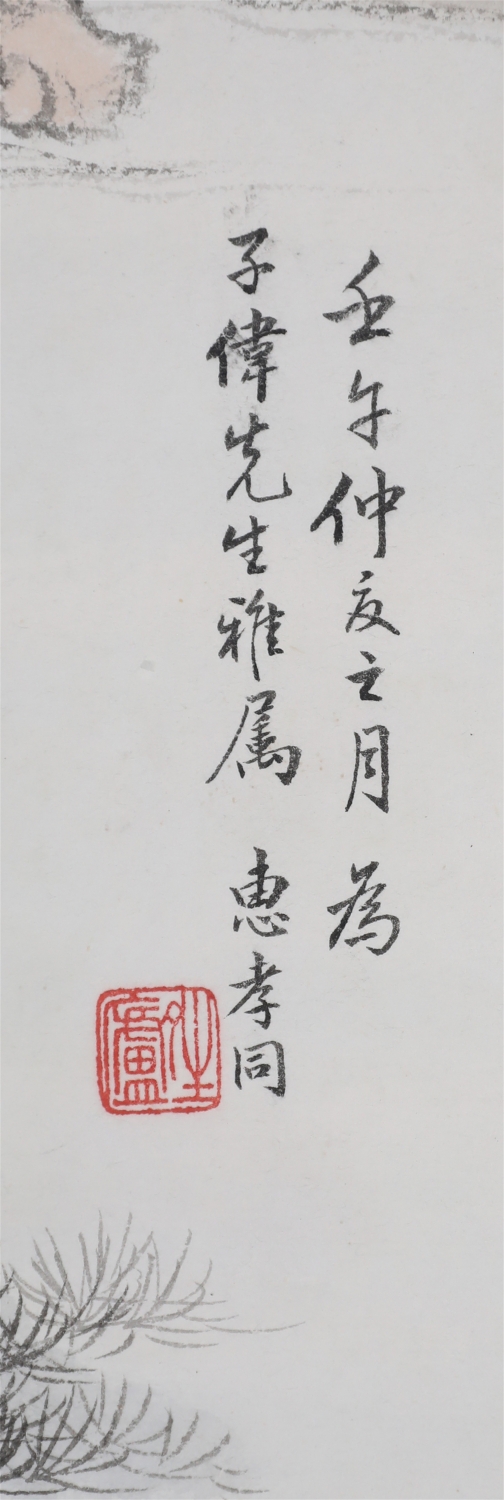 壬午仲夏之月 為
子偉先生雅属 惠孝同